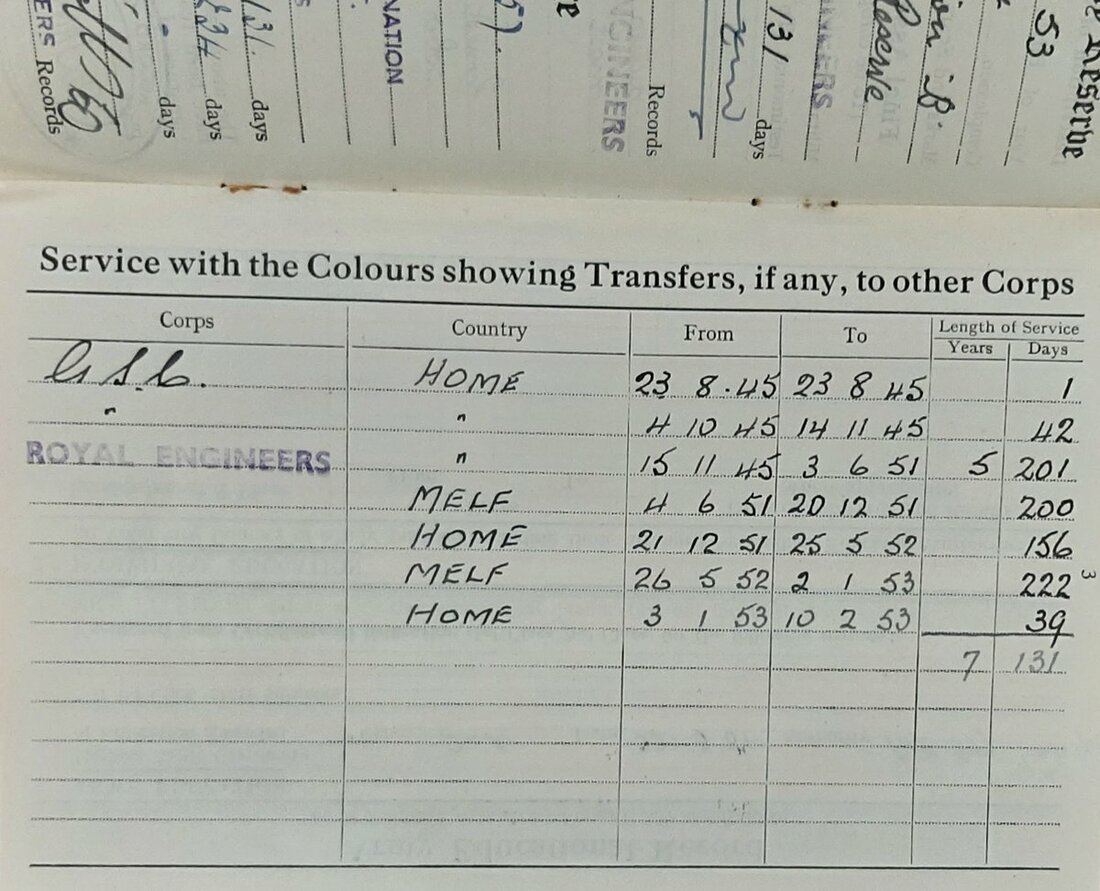 ERS Records
days
234 days
131 days
NATION
Records
NGINEERS
131 days
Reserve
53
Reserve
Service with the Colours showing Transfers, if any, to other Corps
Corps Country From To Length of Service
Years Days
G.S.C. HOME 23 8.45 23 8 45 1
" " 4 10 45 14 11 45 42
ROYAL ENGINEERS " 15 11 45 3 6 51 5 201
MELF 4 6 51 20 12 51 200
HOME 21 12 51 25 5 52 156
MELF 26 5 52 2 1 53 222
3
HOME 3 1 53 10 2 53 39
7 131